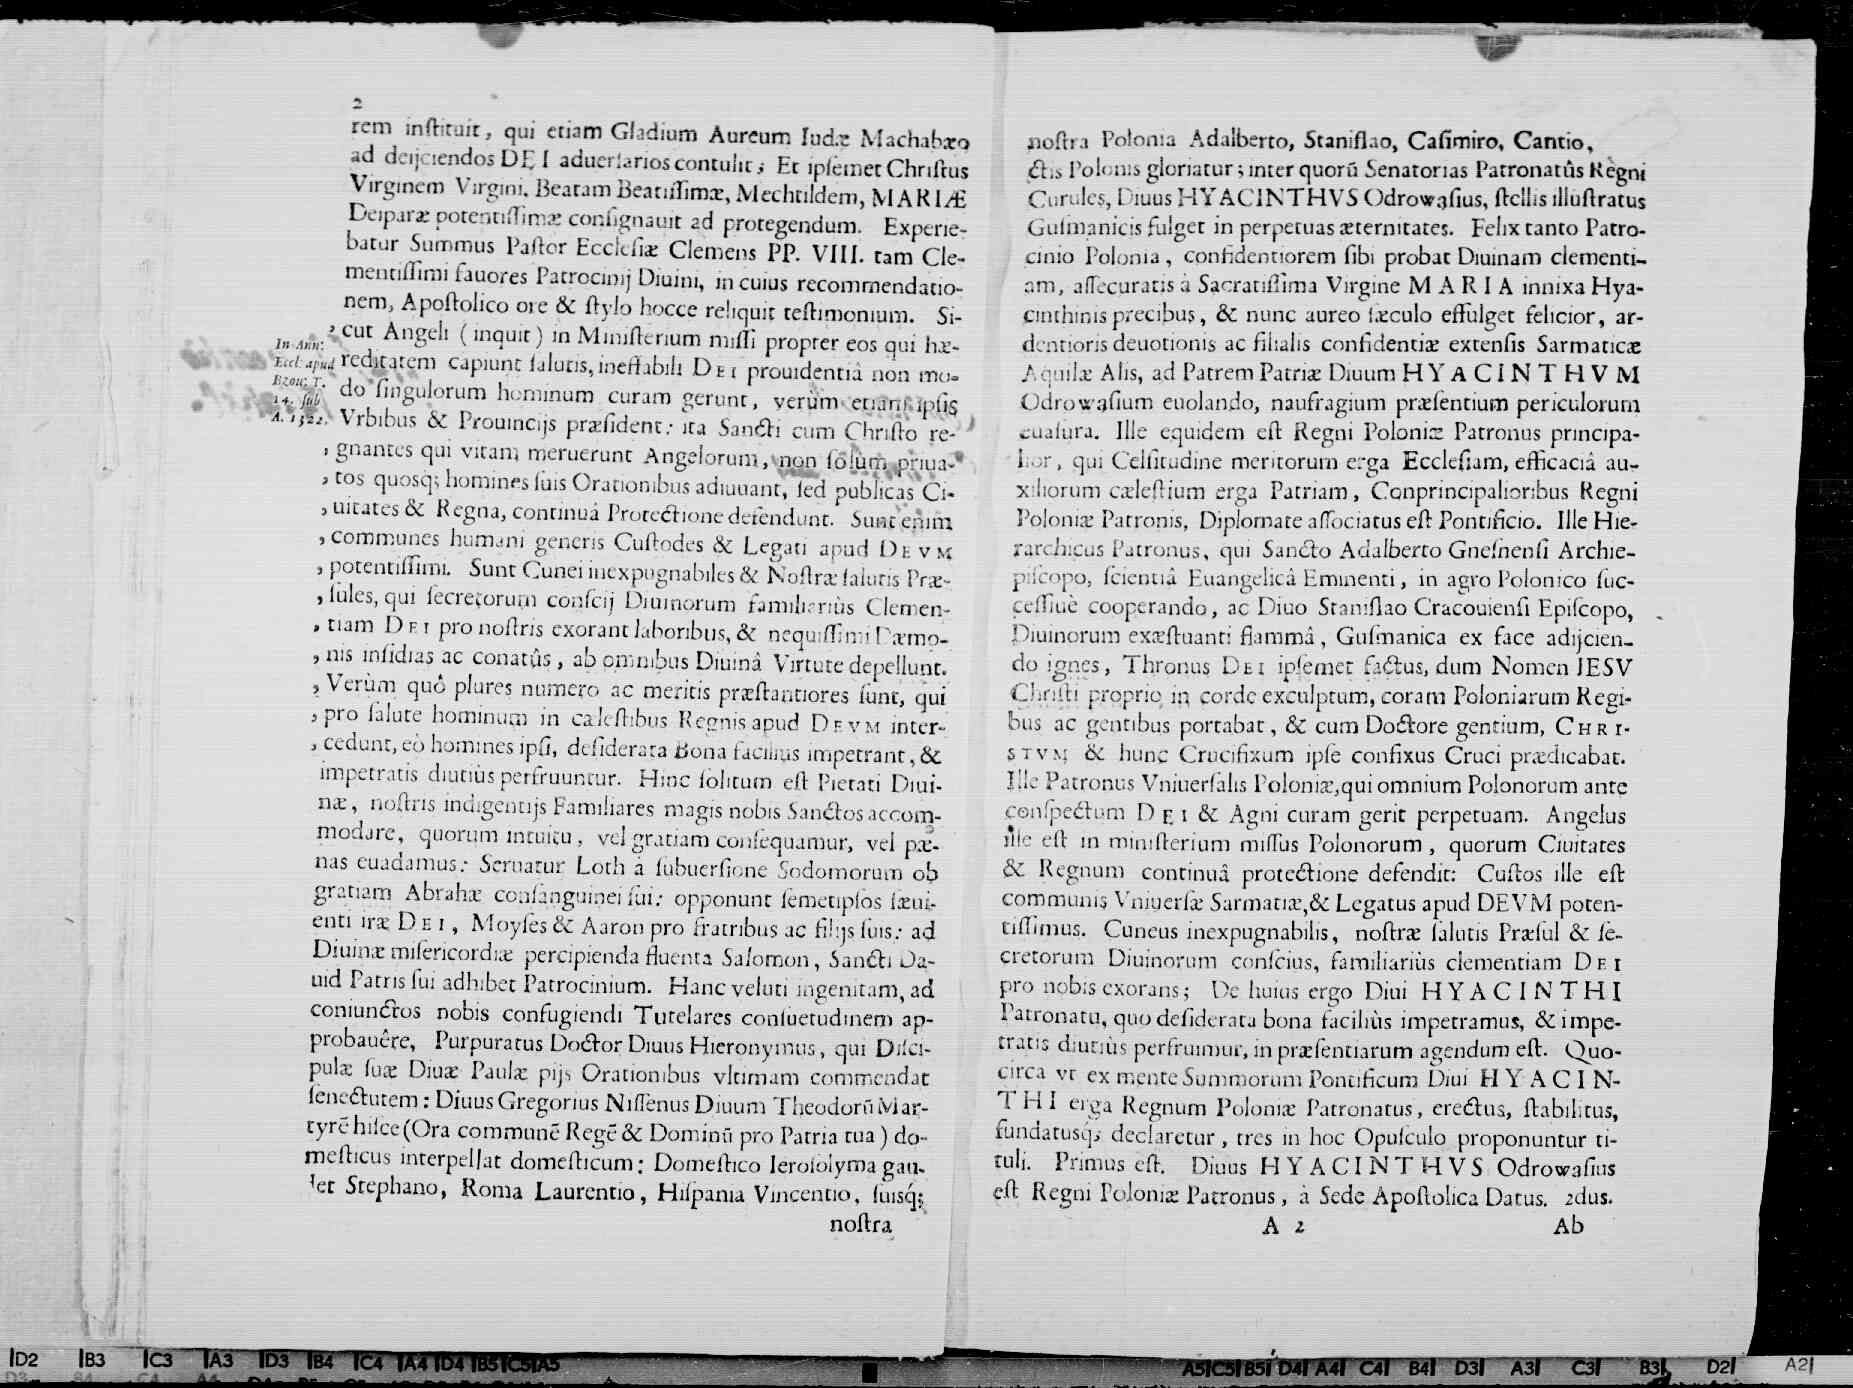 2
rem inſtituit, qui etiam Gladium Aureum Iudæ Machabæo
ad deijciendos DEI aduerſarios contulit; Et ipſemet Chriſtus
Virginem Virgini, Beatam Beatiſſimæ, Mechtildem, MARIÆ
Deiparæ potentiſſimæ conſignauit ad protegendum. Experie-
batur Summus Paſtor Eccleſiæ Clemens PP. VIII. tam Cle-
mentiſſimi fauores Patrocinij Diuini, in cuius recommendatio-
nem, Apoſtolico ore & ſtylo hocce reliquit teſtimonium. Si-
, cut Angeli (inquit) in Miniſterium miſſi propter eos qui hæ-
In Ann:
Eccl: apud
Bzou: T.
14. ſub
A. 1522.
reditatem capiunt ſalutis, ineffabili DEI prouidentiâ non mo-
do ſingulorum hominum curam gerunt, verùm etiam ipſis
Vrbibus & Prouincijs præſident: ita Sancti cum Chriſto re-
, gnantes qui vitam meruerunt Angelorum, non ſolùm priua-
, tos quosq; homines ſuis Orationibus adiuuant, ſed publicas Ci-
, uitates & Regna, continuâ Protectione defendunt. Sunt enim
, communes humani generis Cuſtodes & Legati apud DEVM
, potentiſſimi. Sunt Cunei inexpugnabiles & Noſtræ ſalutis Præ-
, ſules, qui ſecretorum conſcij Diuinorum familiariùs Clemen-
, tiam DEI pro noſtris exorant laboribus, & nequiſſimi Dæmo-
, nis inſidias ac conatûs, ab omnibus Diuinâ Virtute depellunt.
, Verùm quò plures numero ac meritis præſtantiores ſunt, qui
, pro ſalute hominum in cæleſtibus Regnis apud DEVM inter-
, cedunt, eò homines ipſi, deſiderata Bona faciliùs impetrant, &
impetratis diutiùs perfruuntur. Hinc ſolitum eſt Pietati Diui-
næ, noſtris indigentijs Familiares magis nobis Sanctos accom-
modare, quorum intuitu, vel gratiam conſequamur, vel pæ-
nas euadamus: Seruatur Loth à ſubuerſione Sodomorum ob
gratiam Abrahæ conſanguinei ſui: opponunt ſemetipſos ſæui-
enti iræ DEI, Moyſes & Aaron pro fratribus ac filijs ſuis: ad
Diuinæ miſericordiæ percipienda fluenta Salomon, Sancti Da-
uid Patris ſui adhibet Patrocinium. Hanc veluti ingenitam, ad
coniunctos nobis confugiendi Tutelares conſuetudinem ap-
probauêre, Purpuratus Doctor Diuus Hieronymus, qui Diſci-
pulæ ſuæ Diuæ Paulæ pijs Orationibus vltimam commendat
ſenectutem: Diuus Gregorius Niſſenus Diuum Theodorũ Mar-
tyrẽ hiſce (Ora communẽ Regẽ & Dominũ pro Patria tua) do-
meſticus interpellat domeſticum: Domeſtico Ieroſolyma gau-
et Stephano, Roma Laurentio, Hiſpania Vincentio, ſuisq́;
noſtra
noſtra Polonia Adalberto, Staniſlao, Caſimiro, Cantio,
ctis Polonis gloriatur; inter quorũ Senatorias Patronatûs Regni
Curules, Diuus HYACINTHVS Odrowąſius, ſtellis illuſtratus
Guſmanicis fulget in perpetuas æternitates. Felix tanto Patro-
cinio Polonia, confidentiorem ſibi probat Diuinam clementi-
am, aſſecuratis à Sacratiſſima Virgine MARIA innixa Hya-
cinthinis precibus, & nunc aureo ſæculo effulget felicior, ar-
dentioris deuotionis ac filialis confidentiæ extenſis Sarmaticæ
Aquilæ Alis, ad Patrem Patriæ Diuum HYACINTHVM
Odrowąſium euolando, naufragium præſentium periculorum
euaſura. Ille equidem eſt Regni Poloniæ Patronus principa-
lior, qui Celſitudine meritorum erga Eccleſiam, efficaciâ au-
xiliorum cæleſtium erga Patriam, Conprincipalioribus Regni
Poloniæ Patronis, Diplomate aſſociatus eſt Pontificio. Ille Hie-
rarchicus Patronus, qui Sancto Adalberto Gneſnenſi Archie-
piſcopo, ſcientiâ Euangelicâ Eminenti, in agro Polonico ſuc-
ceſſiuè cooperando, ac Diuo Staniſlao Cracouienſi Epiſcopo,
Diuinorum exæſtuanti flammâ, Guſmanica ex face adijcien-
do ignes, Thronus DEI ipſemet factus, dum Nomen JESV
Chriſti proprio in corde exculptum, coram Poloniarum Regi-
bus ac gentibus portabat, & cum Doctore gentium, CHRI-
STVM & hunc Crucifixum ipſe confixus Cruci prædicabat.
Ille Patronus Vniuerſalis Poloniæ, qui omnium Polonorum ante
conſpectum DEI & Agni curam gerit perpetuam. Angelus
ille eſt in miniſterium miſſus Polonorum, quorum Ciuitates
& Regnum continuâ protectione defendit: Cuſtos ille eſt
communis Vniuerſæ Sarmatiæ, & Legatus apud DEVM poten-
tiſſimus. Cuneus inexpugnabilis, noſtræ ſalutis Præſul & ſe-
cretorum Diuinorum conſcius, familiariùs clementiam DEI
pro nobis exorans; De huius ergo Diui HYACINTHI
Patronatu, quo deſiderata bona faciliùs impetramus, & impe-
tratis diutiùs perfruimur, in præſentiarum agendum eſt. Quo-
circa vt ex mente Summorum Pontificum Diui HYACIN-
THI erga Regnum Poloniæ Patronatus, erectus, ſtabilitus,
fundatusq́; declaretur, tres in hoc Opuſculo proponuntur ti-
tuli. Primus eſt. Diuus HYACINTHVS Odrowaſius
eſt Regni Poloniæ Patronus, à Sede Apoſtolica Datus. 2dus.
A 2 Ab
D2 B3 C3 A3 D3 B4 C4 A4 D4 B5 C5 A5
A5 C5 B5 D4 A4 C4 B4 D3 A3 C3 B3 D2 A2